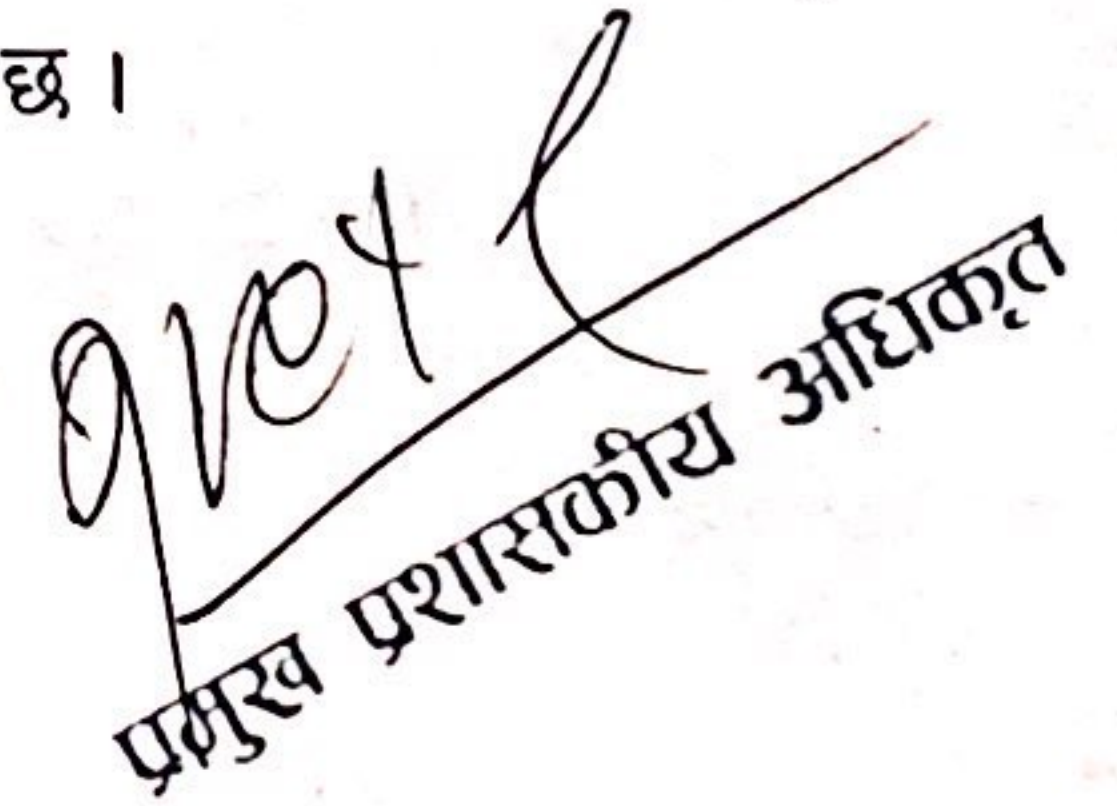 छ ।
प्रमुख प्रशासकीय अधिकृत